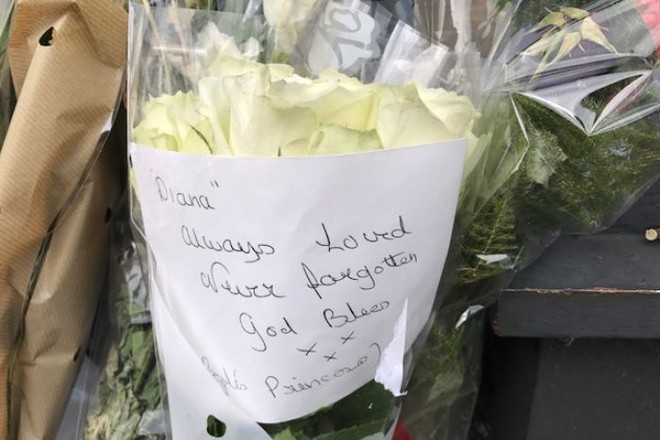 "Diana"
Always Loved
Never forgotten
God Bless
x x x
Princess)